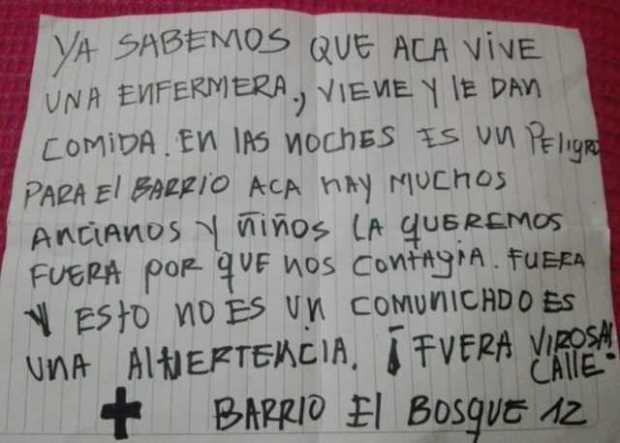 YA SABEMOS QUE ACA VIVE
UNA ENFERMERA, VIENE Y lE DAN
COMIDA. EN lAS NOCHES ES UN PEligRO
PARA El BARRIO ACA HAY MUCHOS
ANCIANOS Y NIÑOS LA QUEREMOS
FUERA POR QUE NOS CONTAGIA. FUERA
Y ESTO NO ES UN COMUNICADO ES
UNA AlVERTENCIA. ¡FUERA VIROSA!
CAllE
BARRIO El BOSQUE 12